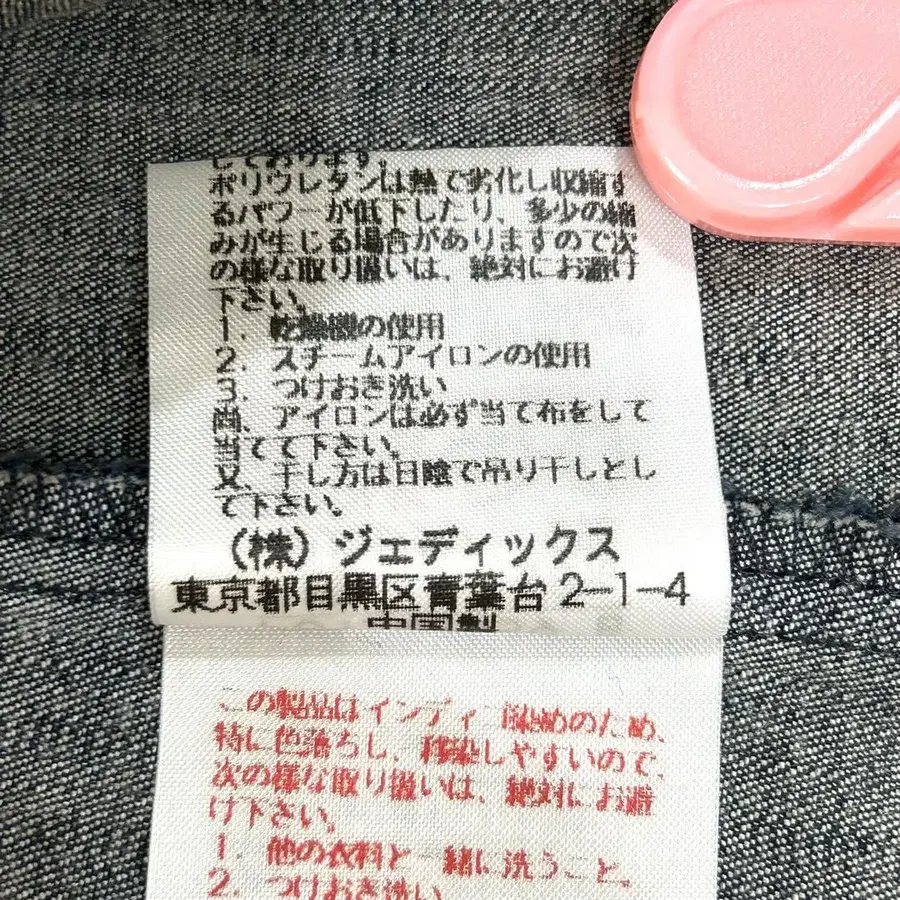 しております。
ポリウレタンは熱で劣化し収縮す
るパワーが低下したり、多少の縮
みが生じる場合がありますので次
の様な取り扱いは、絶対にお避け
下さい。
1. 乾燥機の使用
2. スチームアイロンの使用
3. つけおき洗い
尚、アイロンは必ず当て布をして
当てて下さい。
又、干し方は日陰で吊り干しとし
て下さい。
(株) ジェディックス
東京都目黒区青葉台2-1-4
中国製
この製品はインディゴ染めのため、
特に色落ちし、移染しやすいので、
次の様な取り扱いは、絶対にお避
け下さい。
1. 他の衣料と一緒に洗うこと。
2. つけおき洗い